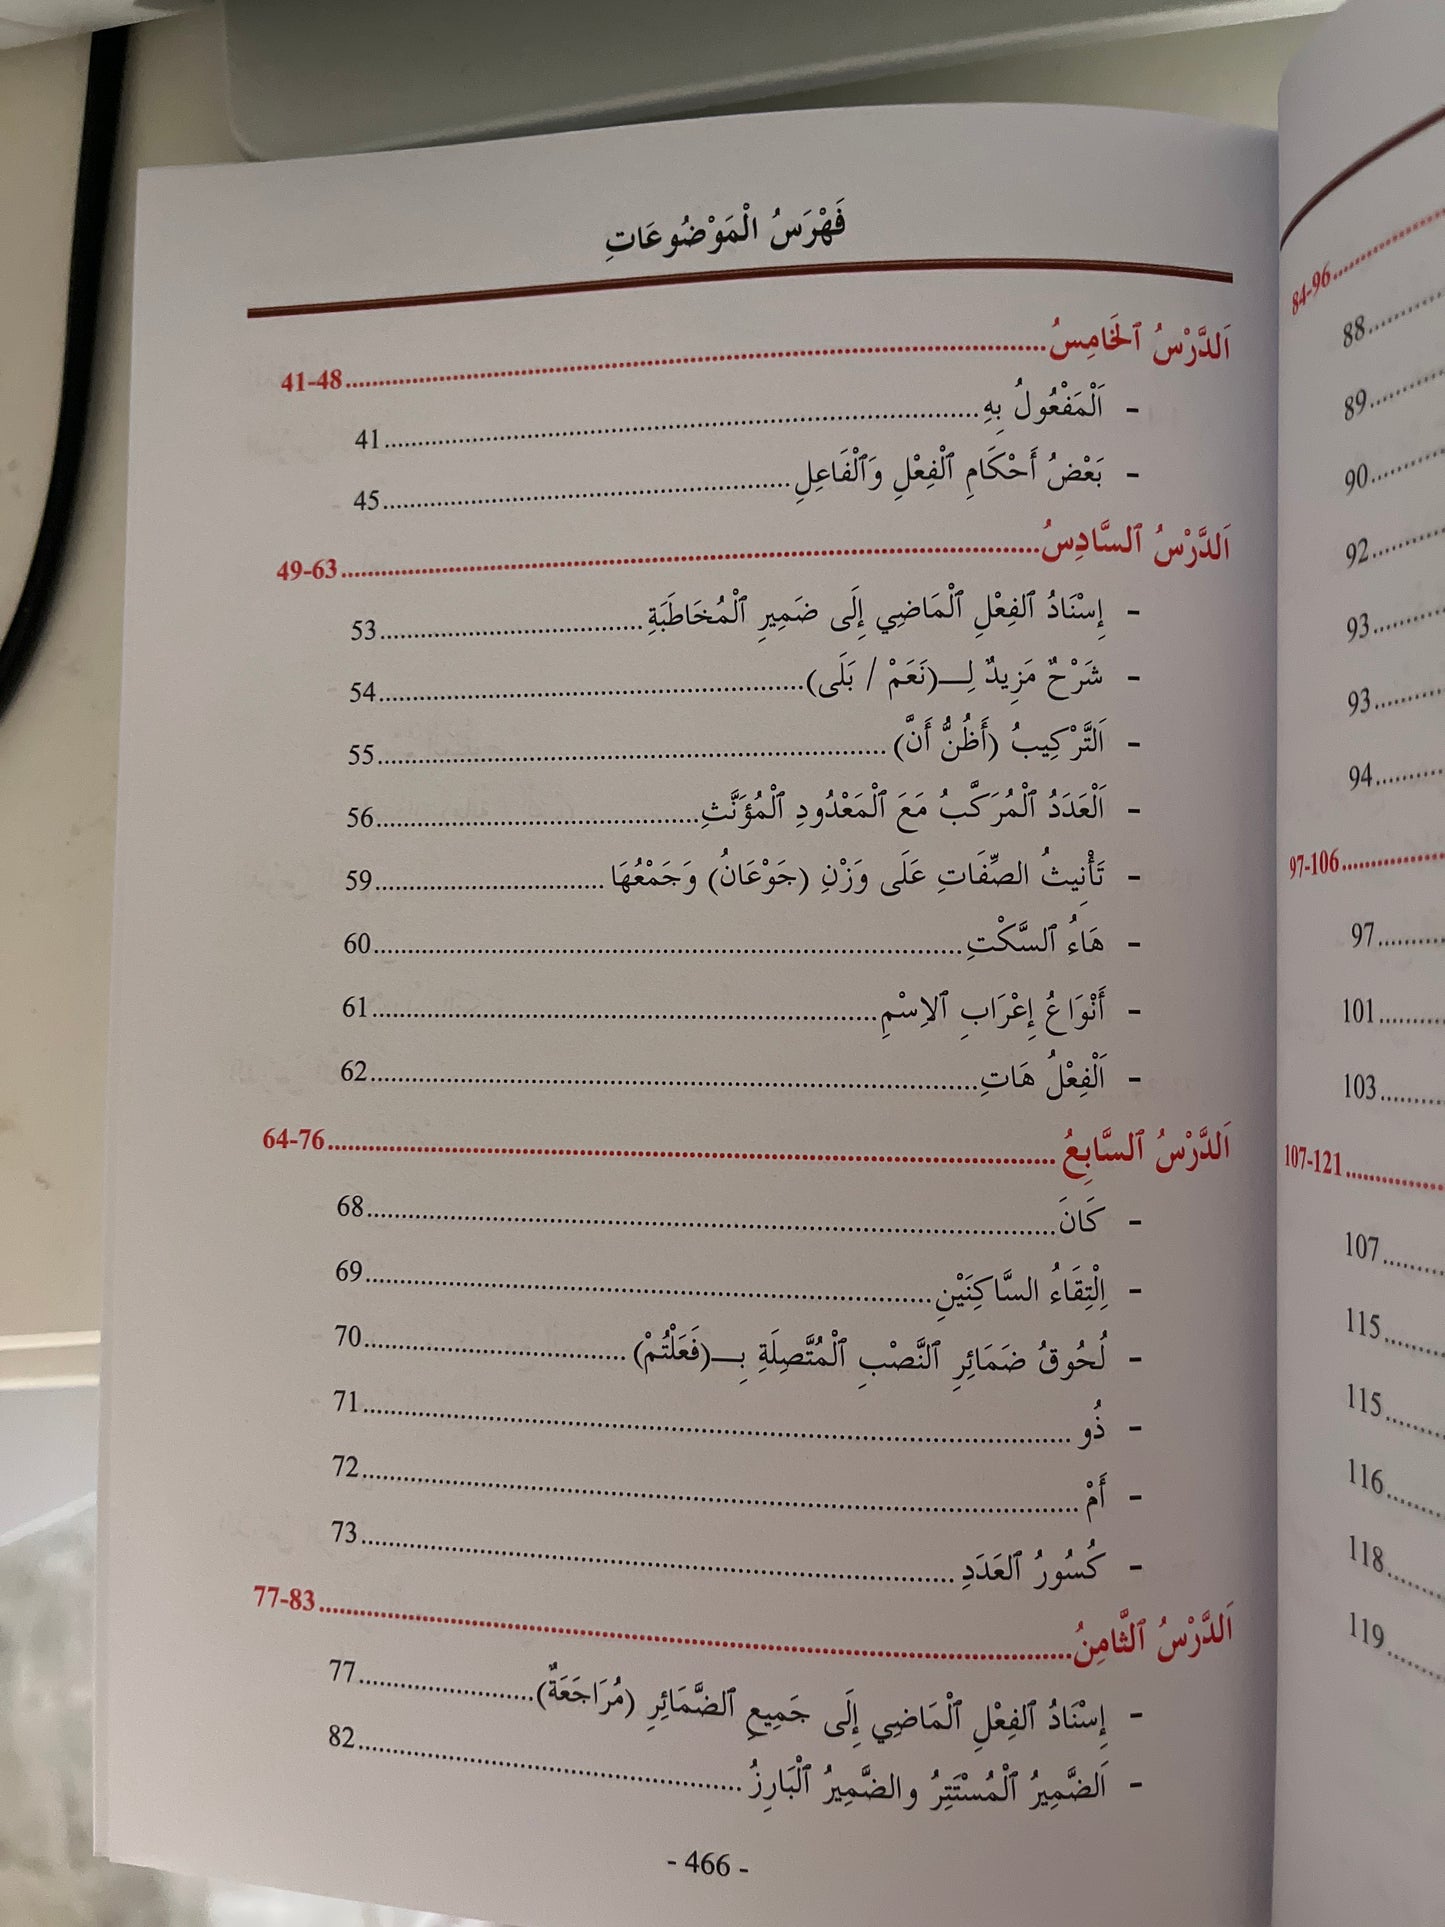 فَهْرَسُ الْمَوْضُوعَاتِ
اَلدَّرْسُ ٱلْخَامِسُ 41-48
- اَلْمَفْعُولُ بِهِ 41
- بَعْضُ أَحْكَامِ ٱلْفِعْلِ وَٱلْفَاعِلِ 45
اَلدَّرْسُ ٱلسَّادِسُ 49-63
- إِسْنَادُ ٱلفِعْلِ ٱلْمَاضِي إِلَى ضَمِيرِ ٱلْمُخَاطَبَةِ 53
- شَرْحٌ مَزِيدٌ لِـ(نَعَمْ / بَلَى) 54
- اَلتَّرْكِيبُ (أَظُنُّ أَنَّ) 55
- اَلْعَدَدُ ٱلْمُرَكَّبُ مَعَ ٱلْمَعْدُودِ ٱلْمُؤَنَّثِ 56
- تَأْنِيثُ الصِّفَاتِ عَلَى وَزْنِ (جَوْعَانُ) وَجَمْعُهَا 59
- هَاءُ ٱلسَّكْتِ 60
- أَنْوَاعُ إِعْرَابِ ٱلاِسْمِ 61
- اَلْفِعْلُ هَاتِ 62
اَلدَّرْسُ ٱلسَّابِعُ 64-76
- كَانَ 68
- اِلْتِقَاءُ السَّاكِنَيْنِ 69
- لُحُوقُ ضَمَائِرِ ٱلنَّصْبِ ٱلْمُتَّصِلَةِ بِـ(فَعَلْتُمْ) 70
- ذُو 71
- أَمْ 72
- كُسُورُ ٱلعَدَدِ 73
اَلدَّرْسُ ٱلثَّامِنُ 77-83
- إِسْنَادُ ٱلفِعْلِ ٱلْمَاضِي إِلَى جَمِيعِ ٱلضَّمَائِرِ (مُرَاجَعَةٌ) 77
- اَلضَّمِيرُ ٱلْمُسْتَتِرُ والضَّمِيرُ ٱلْبَارِزُ 82
- 466 -
84-96
88
89
90
92
93
93
94
97-106
97
101
103
107-121
107
115
115
116
118
119